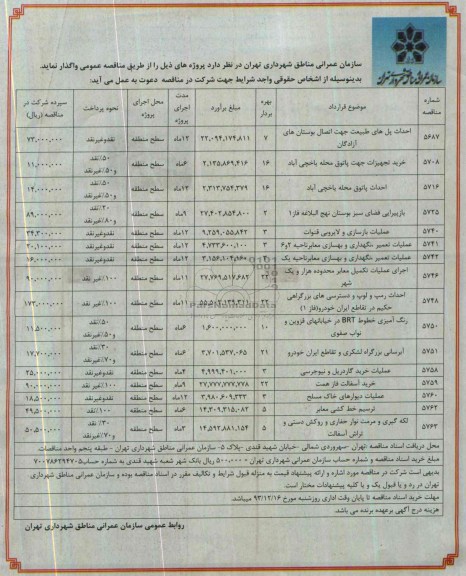 سازمان عمرانی مناطق شهرداری تهران در نظر دارد پروژه های ذیل را از طریق مناقصه عمومی واگذار نماید.
بدینوسیله از اشخاص حقوقی واجد شرایط جهت شرکت در مناقصه دعوت به عمل می آید:
شماره مناقصه موضوع قرارداد بهره بردار مبلغ برآورد مدت اجرای پروژه محل اجرای پروژه نحوه پرداخت سپرده شرکت در مناقصه (ریال)
۵۶۸۷ احداث پل های طبیعت جهت اتصال بوستان های آزادگان ۷ ۲۲,۰۹۴,۱۷۴,۸۱۱ ۱۲ماه سطح منطقه نقدوغیرنقد ۷۳,۰۰۰,۰۰۰
۵۷۰۸ خرید تجهیزات جهت پاتوق محله باخچی آباد ۱۶ ۲,۱۳۵,۸۶۹,۴۱۶ ۶ماه سطح منطقه ۵۰٪نقد و۵۰٪غیرنقد ۱۱,۰۰۰,۰۰۰
۵۷۱۶ احداث پاتوق محله باخچی آباد ۱۶ ۲,۳۱۳,۷۵۴,۳۷۹ ۱۲ماه سطح منطقه ۵۰٪نقد و۵۰٪غیرنقد ۱۲,۰۰۰,۰۰۰
۵۷۲۵ بازپیرایی فضای سبز بوستان نهج البلاغه فاز۱ ۲ ۲۷,۴۰۲,۸۵۴,۸۰۰ ۹ماه سطح منطقه ۲۰٪نقد و۸۰٪غیرنقد ۸۹,۰۰۰,۰۰۰
۵۷۴۰ عملیات بازسازی و لایروبی قنوات ۳ ۹,۲۰۵,۰۵۵,۸۴۲ ۱۲ماه سطح منطقه نقدوغیرنقد ۳۴,۳۰۰,۰۰۰
۵۷۴۱ عملیات تعمیر ،نگهداری و بهسازی معابرناحیه ۲و۶ ۳ ۴,۷۳۳,۶۰۰,۱۰۰ ۱۲ماه سطح منطقه نقدوغیرنقد ۲۰,۱۰۰,۰۰۰
عملیات تعمیر ،نگهداری و بهسازی معابرناحیه یک ۳ ۱۲ماه سطح منطقه نقدوغیرنقد ۱۶,۰۰۰,۰۰۰
۵۷۴۶ اجرای عملیات تکمیل معابر محدوده هزار و یک شهر ۲۲ ۲۷,۷۶۹,۵۱۷,۶۸۲ ۱۱ماه سطح منطقه ۱۰۰٪ غیر نقد ۹۰,۰۰۰,۰۰۰
۵۷۴۸ احداث رمپ و لوپ و دسترسی های بزرگراهی حکیم در تقاطع ایران خودرو(فاز ۱) ۲۲ ۱۱ماه سطح منطقه ۱۰۰٪ غیر نقد ۱۷۳,۰۰۰,۰۰۰
۵۷۵۰ رنگ آمیزی خطوط BRT در خیابانهای قزوین و نواب صفوی ۱۰ ۱,۶۰۰,۰۰۰,۰۰۰ ۶ماه سطح منطقه ۵۰٪نقد و۵۰٪غیرنقد ۱۱,۵۰۰,۰۰۰
۵۷۵۱ آبرسانی بزرگراه لشکری و تقاطع ایران خودرو ۲۱ ۳,۷۰۱,۵۳۷,۰۶۵ ۶ماه سطح منطقه ۳۰٪نقد و۷۰٪غیرنقد ۱۷,۷۰۰,۰۰۰
۵۷۵۸ عملیات خرید گاردریل و نیوجرسی ۳ ۴,۹۹۹,۴۰۱,۰۰۰ ۴ماه سطح منطقه نقدوغیرنقد ۲۵,۰۰۰,۰۰۰
۵۷۵۹ خرید آسفالت فاز هست ۲۲ ۲۷,۷۷۷,۷۷۷,۷۷۸ ۹ماه سطح منطقه ۱۰۰٪ غیر نقد ۹۰,۰۰۰,۰۰۰
۵۷۶۰ عملیات دیوارهای خاک مسلح ۳ ۳,۹۸۰,۶۰۹,۳۳۳ ۱۲ماه سطح منطقه نقدوغیرنقد ۱۸,۵۰۰,۰۰۰
۵۷۶۲ ترسیم خط کشی معابر ۵ ۱۴,۳۰۹,۳۱۵,۰۸۲ ۶ماه سطح منطقه ۱۰۰٪نقد ۴۹,۵۰۰,۰۰۰
۵۷۶۳ لکه گیری و مرمت نوار حفاری و روکش دستی و تراش آسفالت ۵ ۱۴,۵۹۲,۸۸۱,۱۵۴ ۳ماه سطح منطقه ۳۰٪ نقد و۷۰٪غیرنقد ۵۰,۵۰۰,۰۰۰
محل دریافت اسناد مناقصه :تهران –سهروردی شمالی –خیابان شهید قندی –پلاک ۵- سازمان عمرانی مناطق شهرداری تهران – طبقه پنجم واحد مناقصات.
مبلغ خرید اسناد مناقصه و شماره حساب سازمان عمرانی مناطق شهرداری تهران - ۵۰۰,۰۰۰ ریال بانک شهر شعبه شهید قندی به شماره حساب۷۰۰۷۸۶۲۹۴۷۰۵
بدیهی است شرکت در مناقصه مورد اشاره و ارائه پیشنهاد قیمت به منزله قبول شرایط و تکالیف مقرر در اسناد مناقصه بوده و سازمان عمرانی مناطق شهرداری
تهران در رد و یا قبول یک و یا کلیه پیشنهادات مختار است.
مهلت خرید اسناد مناقصه تا پایان وقت اداری روزشنبه مورخ ۹۳/۱۲/۱۶ میباشد.
هزینه درج آگهی برعهده برنده می باشد.
روابط عمومی سازمان عمرانی مناطق شهرداری تهران